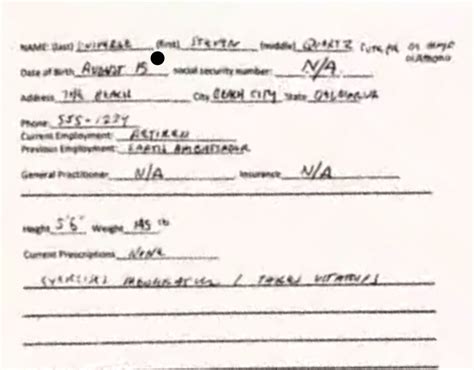 NAME: (last) UNIVERSE (first) STEVEN (middle) QUARTZ CUTIE PIE OR DEMAYO
DIAMOND
Date of Birth AUGUST 15 social security number: N/A
Address THE BEACH City BEACH CITY State DELMARVA
Phone: 555-1234
Current Employment: RETIRED
Previous Employment: EARTH AMBASSADOR
General Practitioner N/A Insurance: N/A
Height 5'6" Weight 145 lb
Current Prescriptions NONE
EXERCISES / TAKES VITAMINS